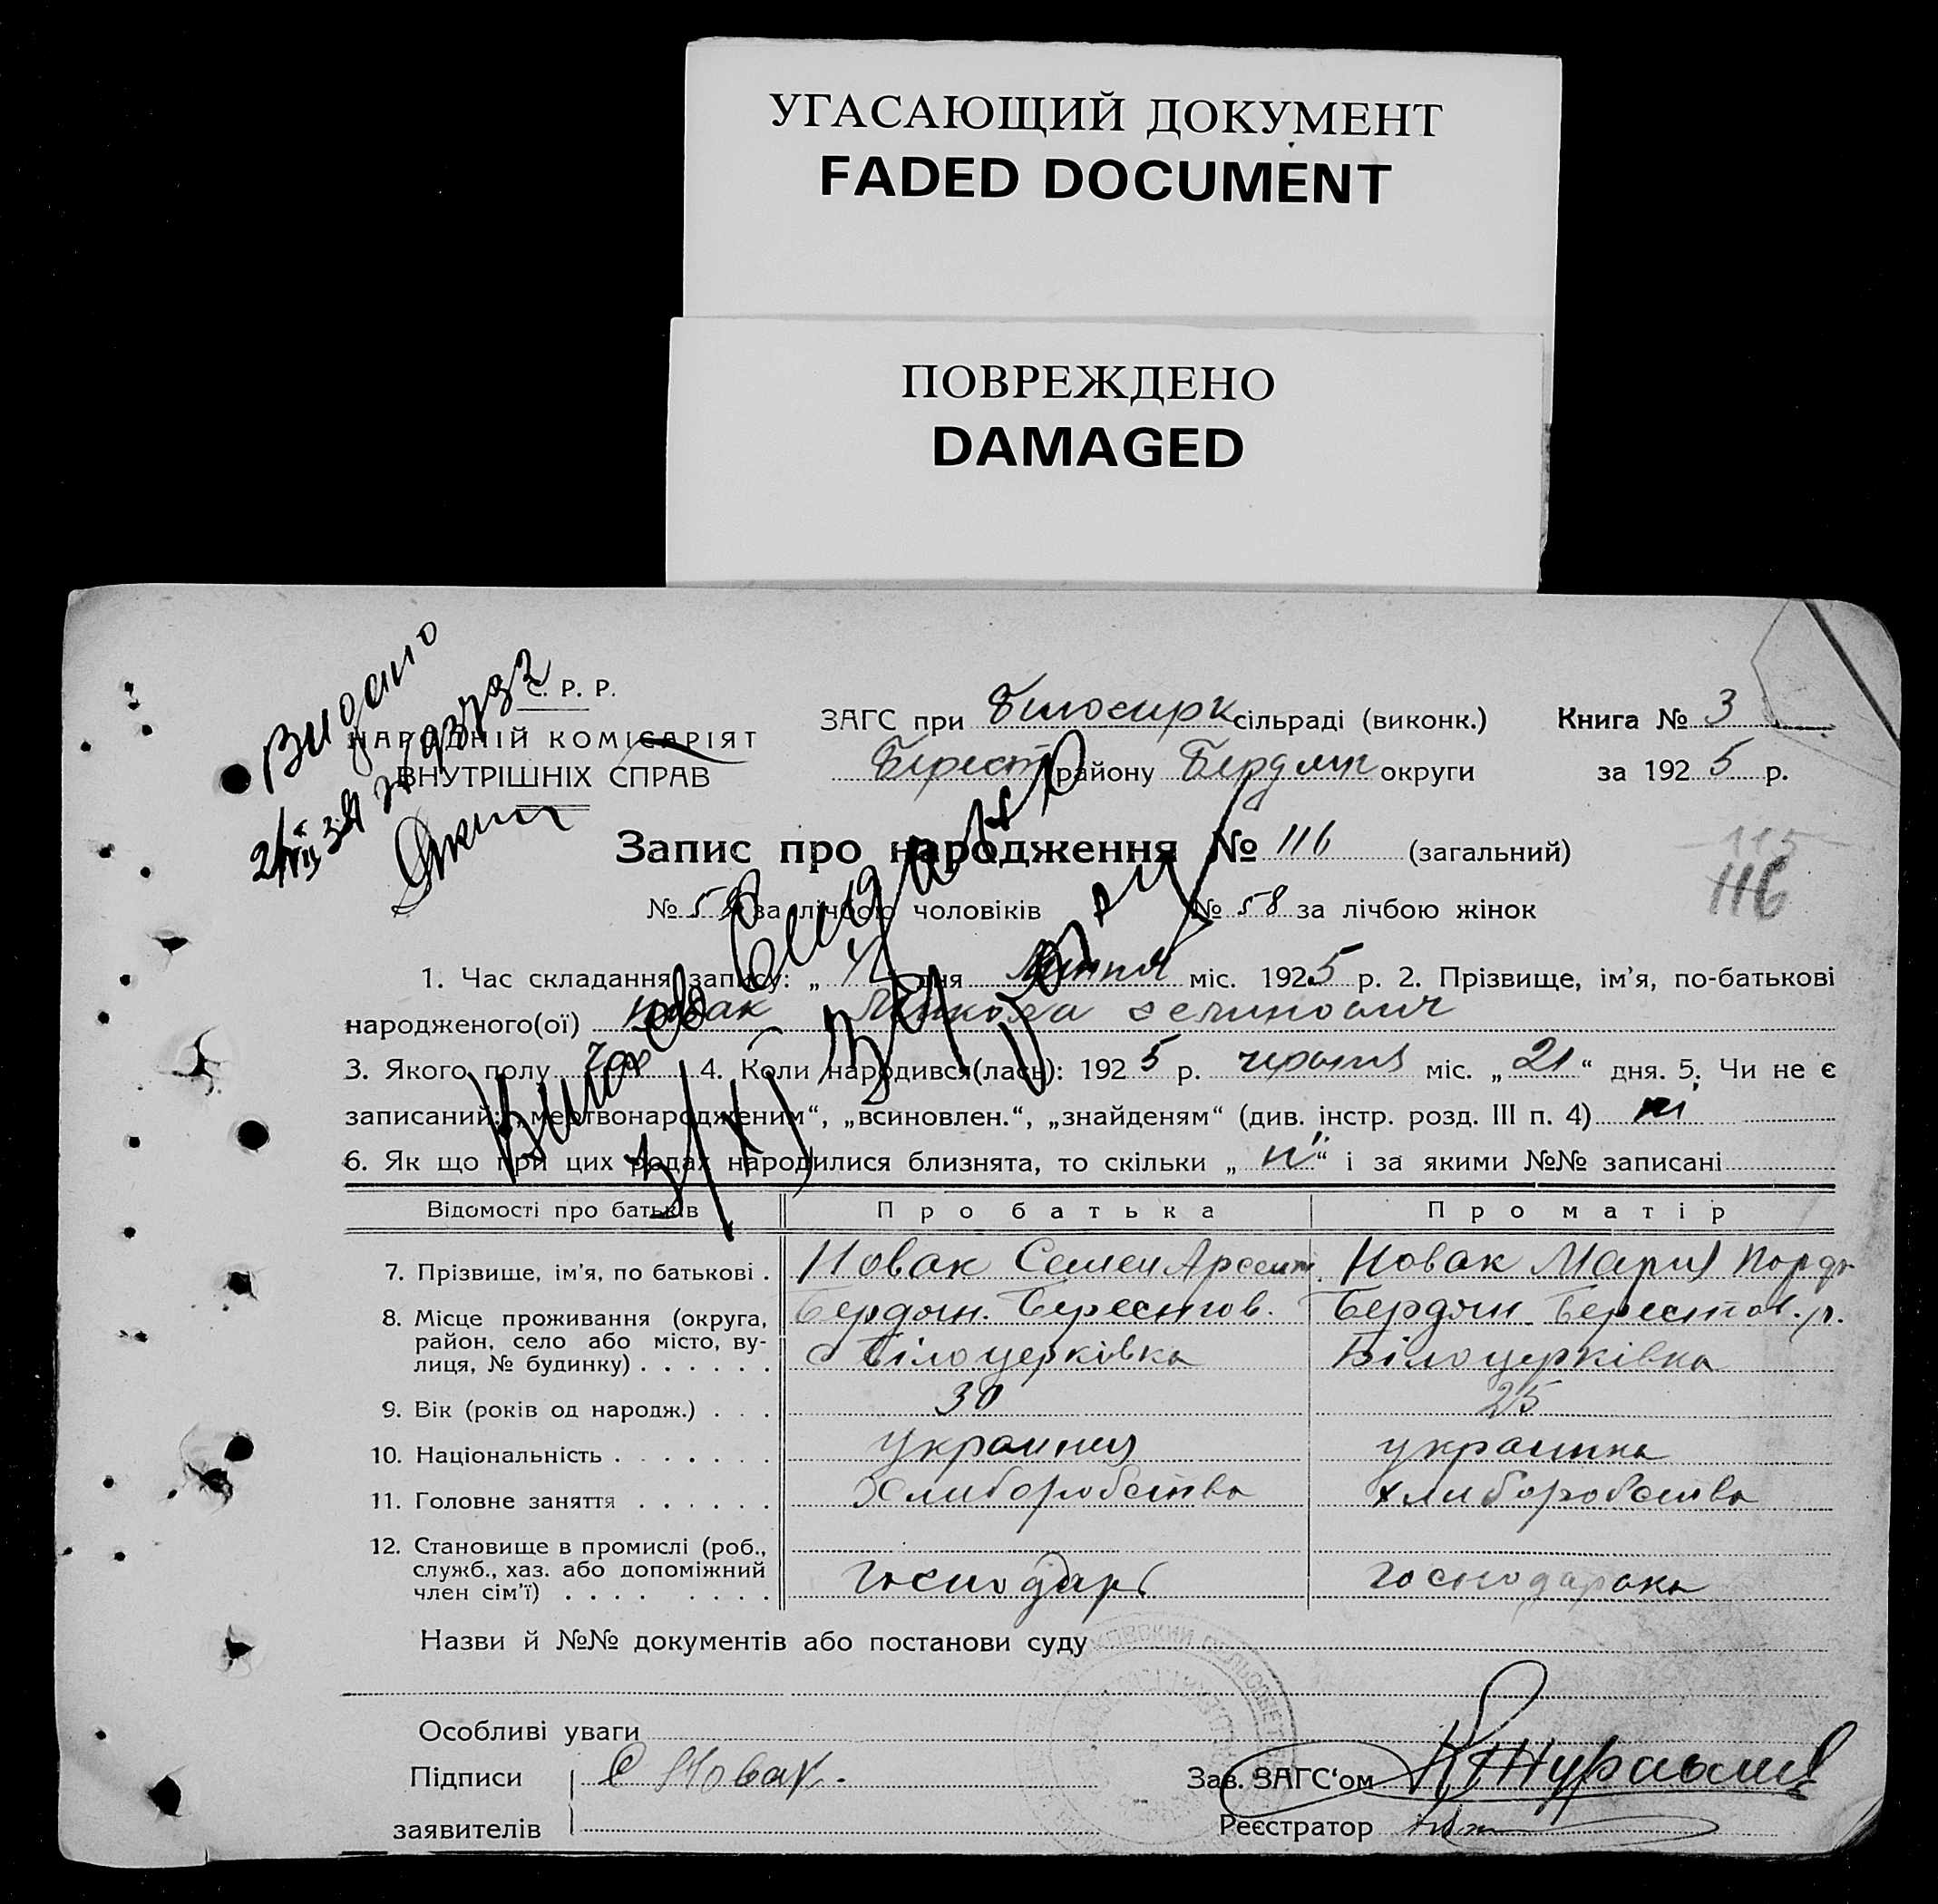 УГАСАЮЩИЙ ДОКУМЕНТ
FADED DOCUMENT
ПОВРЕЖДЕНО
DAMAGED
Видано
С. Р. Р.
НАРОДНІЙ КОМІСАРІЯТ
ВНУТРІШНІХ СПРАВ
ЗАГС при сільраді (виконк.) Книга № 3
Берест району Бердян округи за 1925 р.
Запис про народження № 116 (загальний)
115
116
№ 58 за лічбою чоловіків № 58 за лічбою жінок
1. Час складання запису: „ дня Липня міс. 1925 р. 2. Прізвище, ім’я, по-батькові
народженого(ої) Новак Микола
3. Якого полу чол 4. Коли народився(лась): 1925 р. червня міс. „21“ дня. 5. Чи не є
записаний: „мертвонародженим“, „всиновлен.“, „знайденям“ (див. інстр. розд. III п. 4) ні
6. Як що при цих родах народилися близнята, то скільки „ “ і за якими №№ записані
Відомості про батьків Про батька Про матір
7. Прізвище, ім’я, по батькові . Новак Семен Арсент. Новак Мария
8. Місце проживання (округа, Бердян. Берестов. Бердян Берестов. р.
район, село або місто, ву-
лиця, № будинку) . . . . . . с Білоцерківка Білоцерківка
9. Вік (років од народж.) . . . 30 25
10. Національність . . . . . . . украинец украинка
11. Головне заняття . . . . . . Хлиборобство хлиборобство
12. Становище в промислі (роб.,
служб., хаз. або допоміжний
член сім’ї) . . . . . . . . Господарь господарка
Назви й №№ документів або постанови суду
Особливі уваги
Підписи С Новак. Зав. ЗАГС‘ом
заявителів Реєстратор